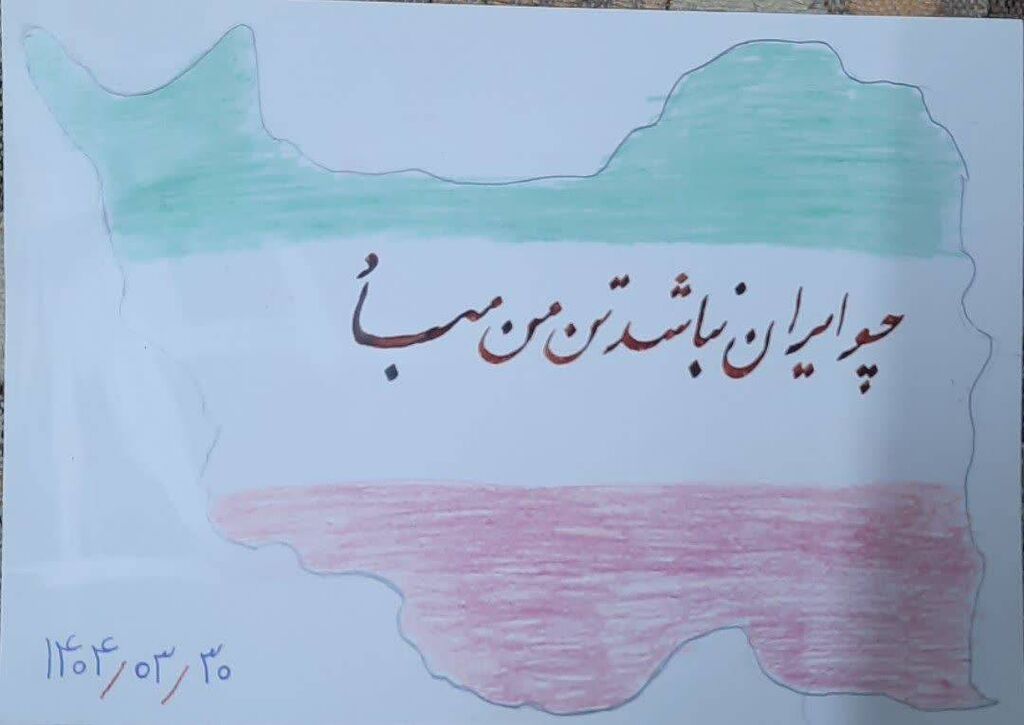 چو ایران نباشد تن من مبأ
۱۴۰۴/۰۳/۳۰